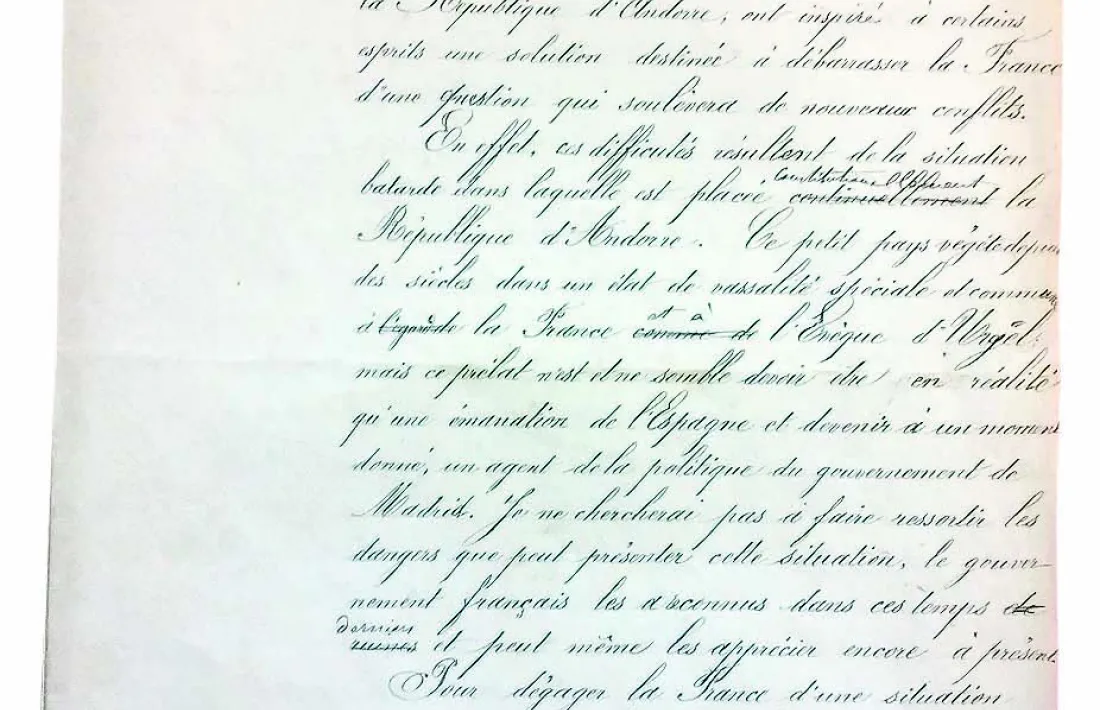 la République d'Andorre, ont inspiré à certains
esprits une solution destinée à débarrasser la France
d'une question qui soulèvera de nouveaux conflits.
En effet, ces difficultés résultent de la situation
constitutionellement
batarde dans laquelle est placée continuellement la
République d'Andorre. Ce petit pays végète depuis
des siècles dans un état de vassalité spéciale et commune
et à
à l'égard de la France comme de l'Evêque d'Urgel;
mais ce prélat n'est et ne semble devoir être en réalité
qu'une émanation de l'Espagne et devenir à un moment
donné, un agent de la politique du gouvernement de
Madrid. Je ne chercherai pas à faire ressortir les
dangers que peut présenter cette situation, le gouver-
nement français les a reconnus dans ces temps de
derniers
et peut même les apprécier encore à présent.
Pour dégager la France d'une situation